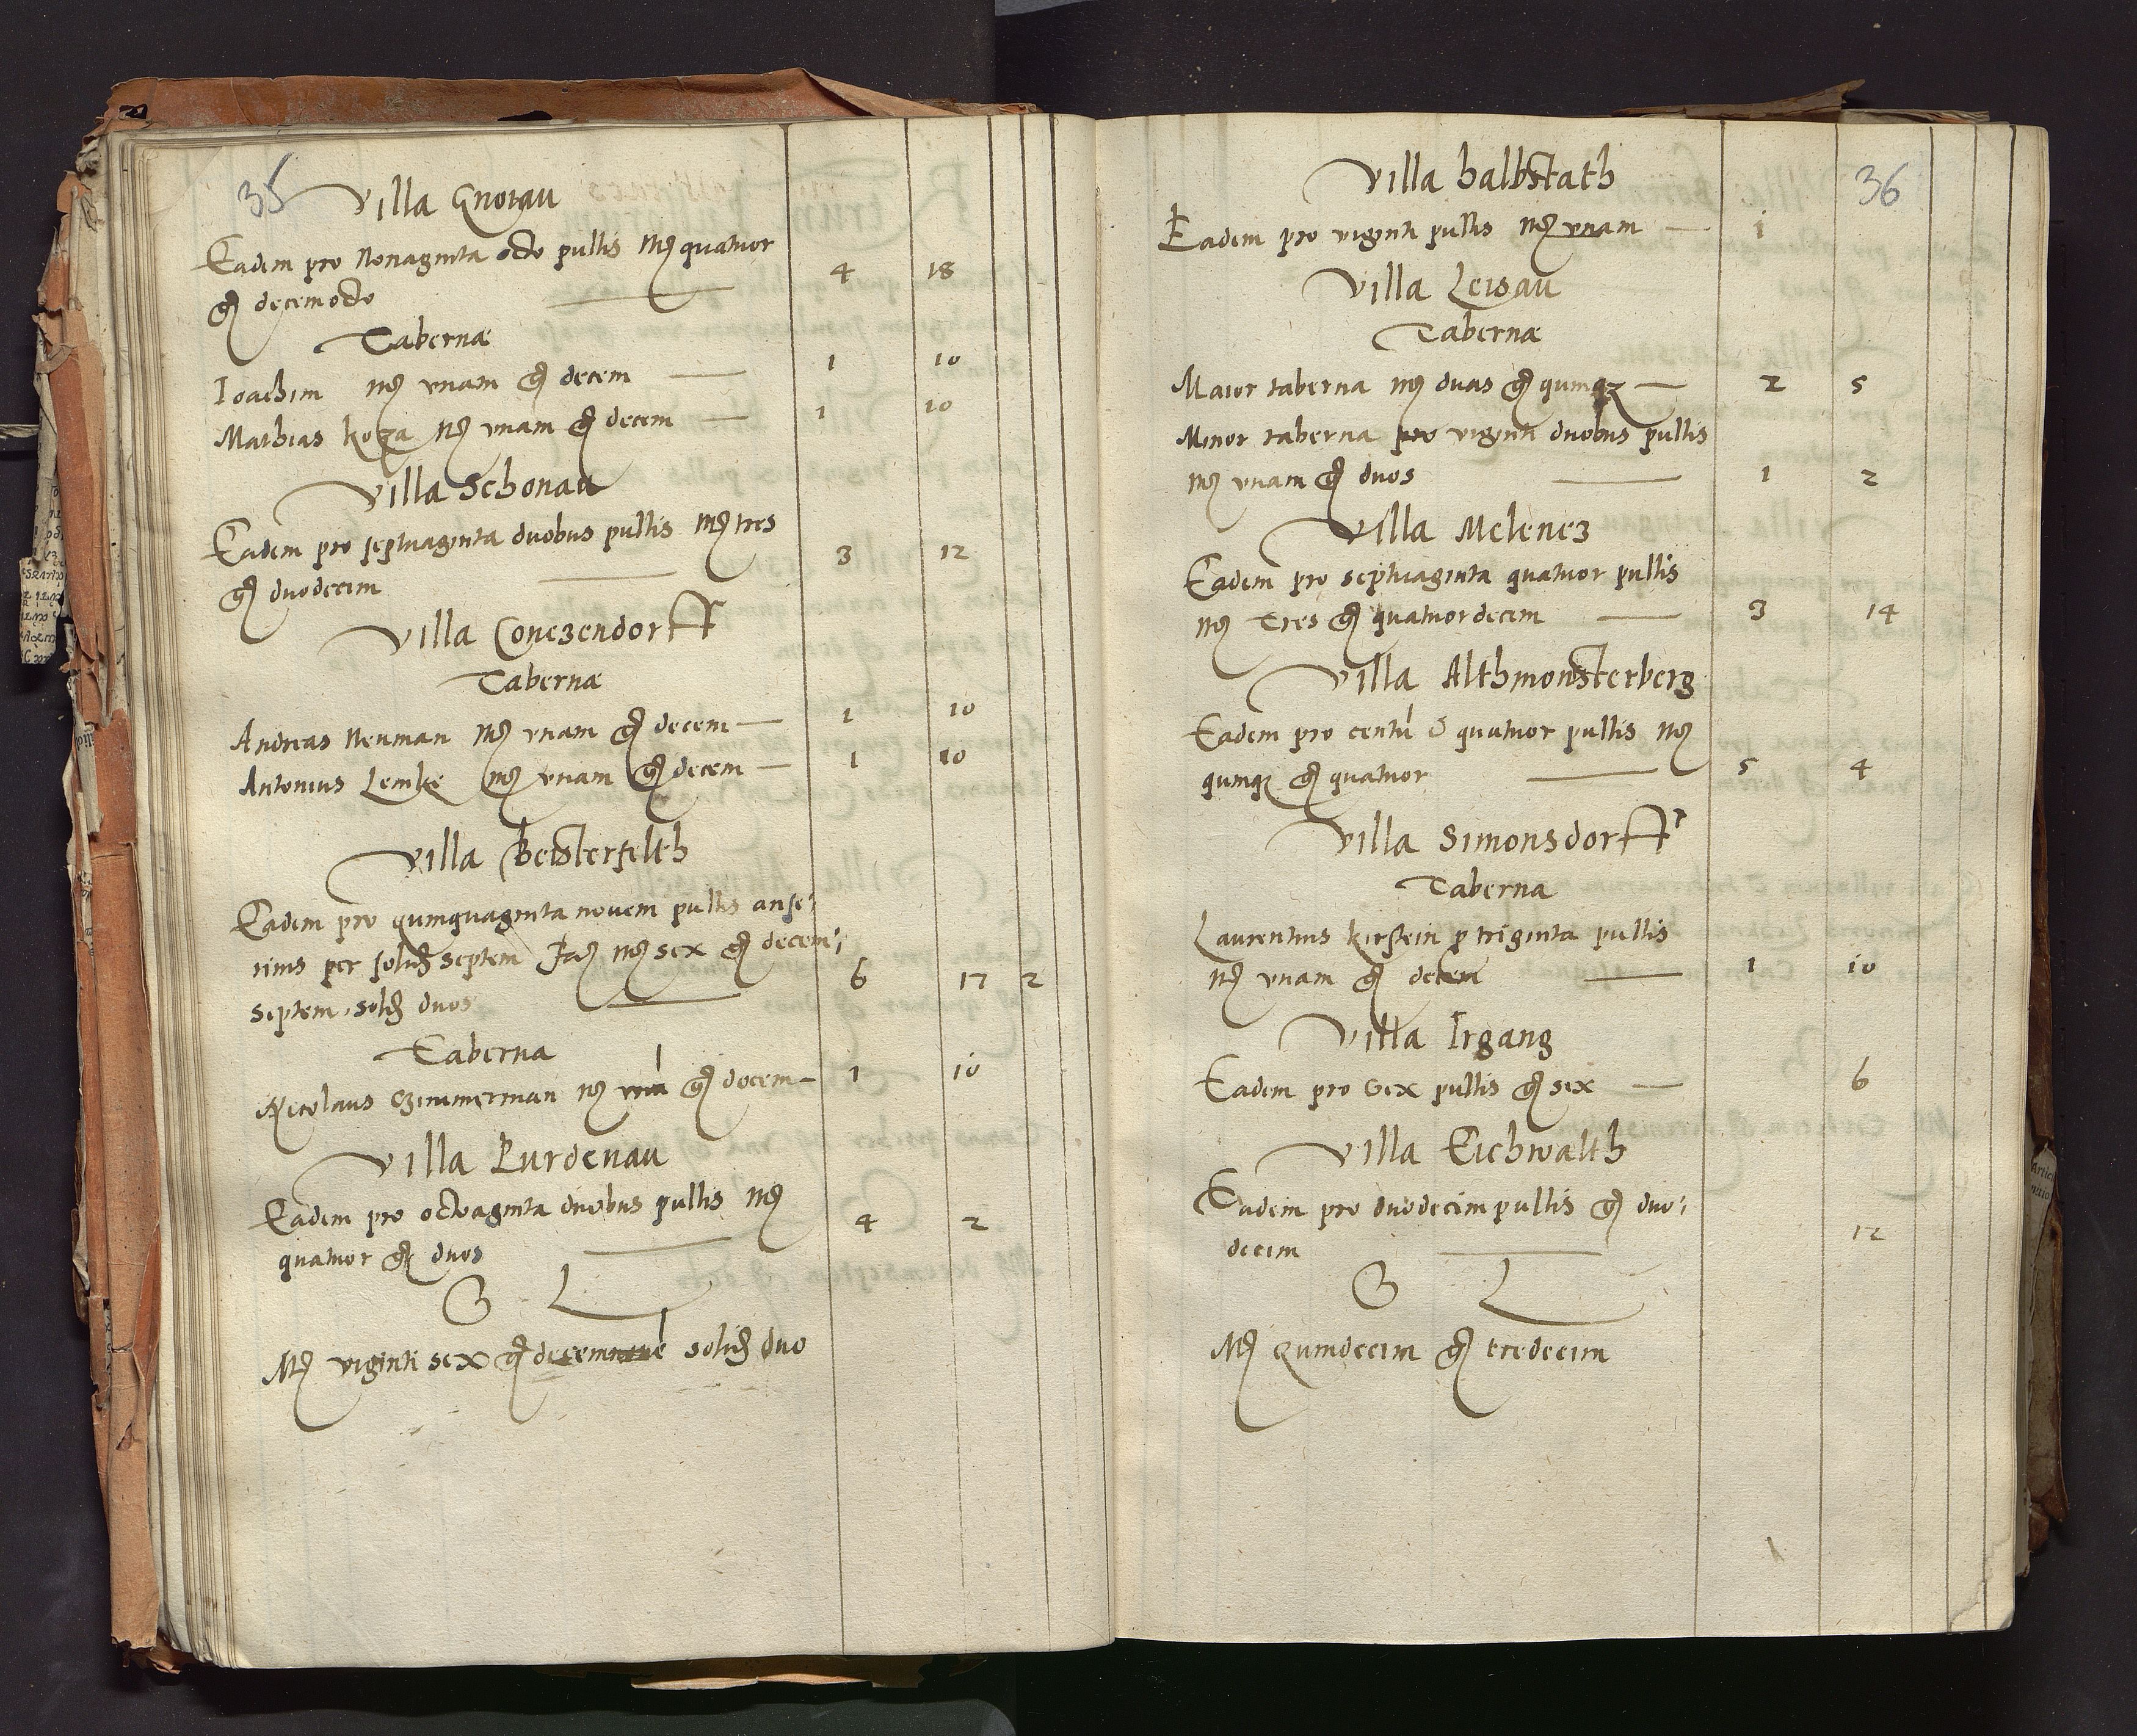 35
Villa Gnoiau
Eadem pro Nonaginta octo pullis mrc quatuor
gr decemocto 4 18
Tabernæ
Ioachim mrc vnam gr decem 1 10
Mathias koza mrc vnam gr decem 1 10
Villa Schonau
Eadem pro septuaginta duobus pullis mrc tres
gr duodecim 3 12
Villa Conczendorff
Tabernæ
Andreas Neuman mrc vnam gr decem 1 10
Antonius Lemke mrc vnam gr decem 1 10
Villa Beisterfelth
Eadem pro quinquaginta novem pullis anse
rinis per solid septem mrc sex gr decem
septem solid duos 6 17 2
Taberna
Nicolaus Czimmerman mrc vnā gr decem 1 10
Villa Purdenau
Eadem pro octoaginta duobus pullis mrc
quatuor gr duos 4 2
S L
Mrc viginti sex gr decemnouē solid duo
36
Villa halbstath
Eadem pro viginti pullis mrc vnam 1
Villa Leisau
Tabernæ
Maior taberna mrc duas gr quinqz 2 5
Minor taberna pro viginti duobus pullis
mrc vnam gr duos 1 2
Villa Melencz
Eadem pro septuaginta quatuor pullis
mrc Tres gr quatuordecim 3 14
Villa Althmonsterberg
Eadem pro centū & quatuor pullis mrc
quinqz gr quatuor 5 4
Villa Simonsdorff
Taberna
Laurentius kirstein p triginta pullis
mrc vnam gr decem 1 10
Villa Irgang
Eadem pro Sex pullis gr sex 6
Villa Eichwalth
Eadem pro duodecim pullis gr duo
decim 12
S L
Mrc Quindecim gr tredecim